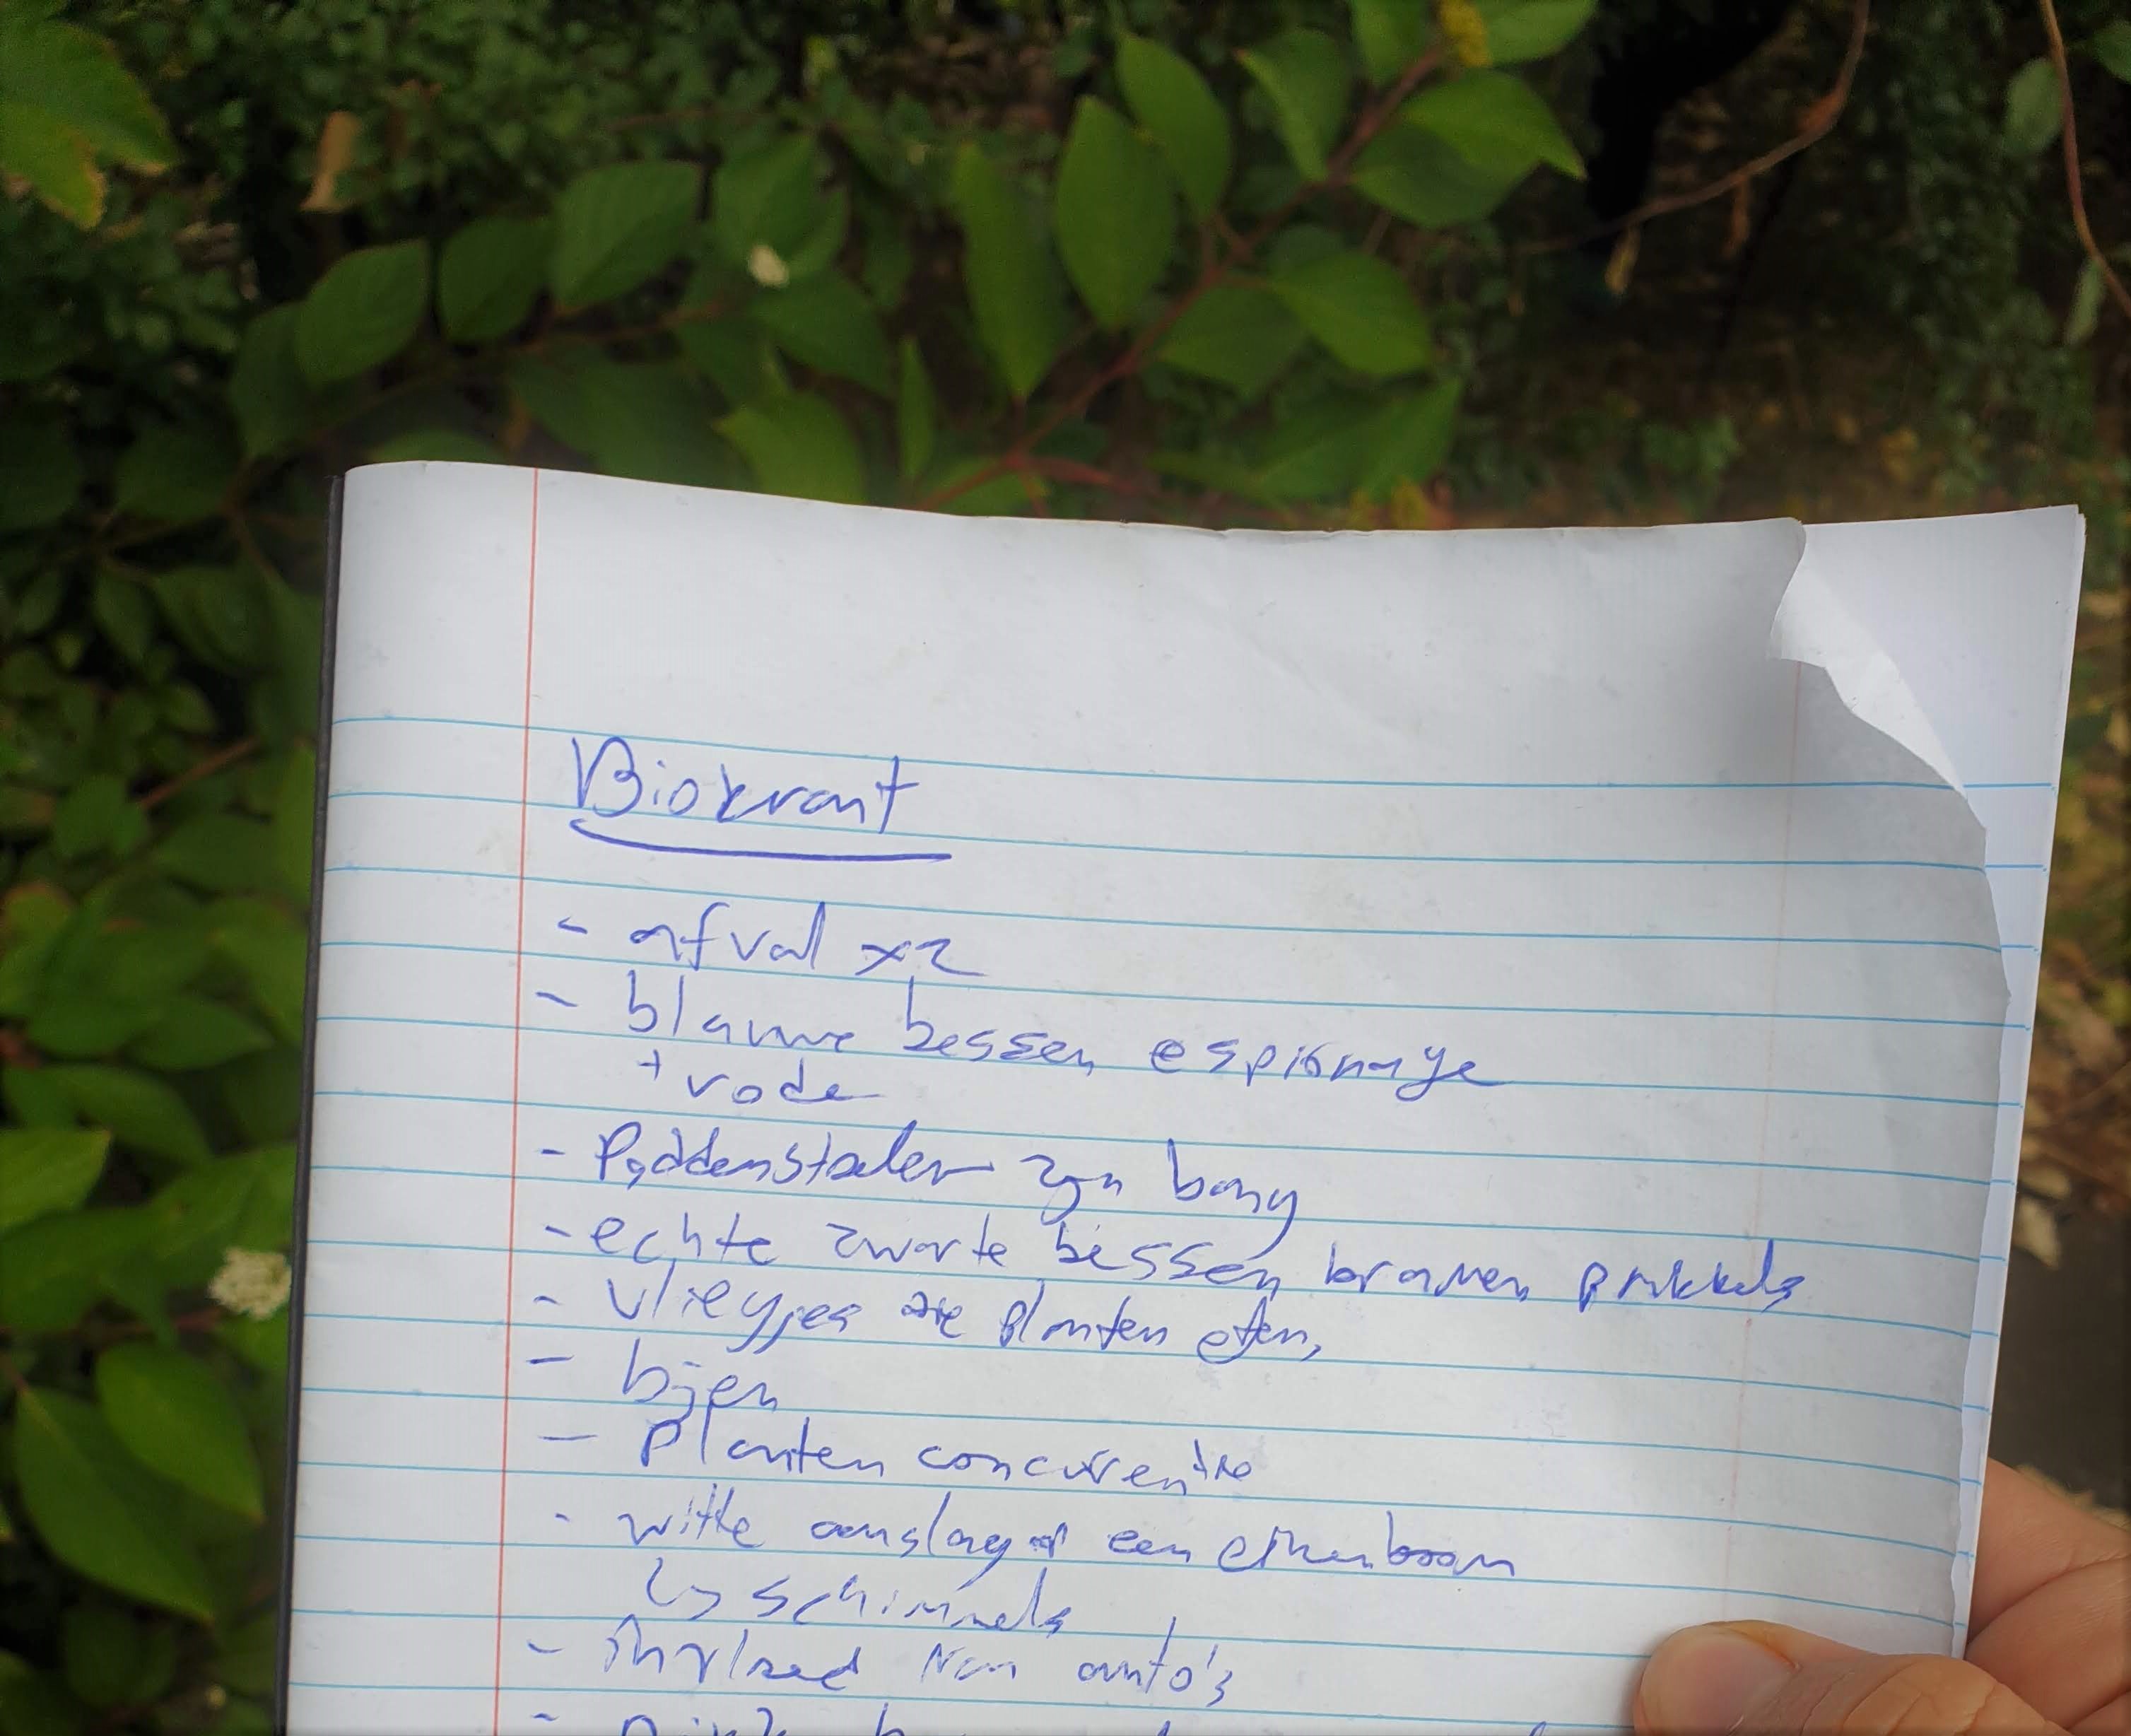 Biokrant
- afval x2
- blauwe bessen espionage
+ rode
- Paddenstoelen zijn bang
- echte zwarte bessen, bramen, prikkels
- vliegjes die planten eten,
- bijen
- Planten concurentie
- witte aanslag op een eikenboom
↳ schimmels
- invloed van auto's